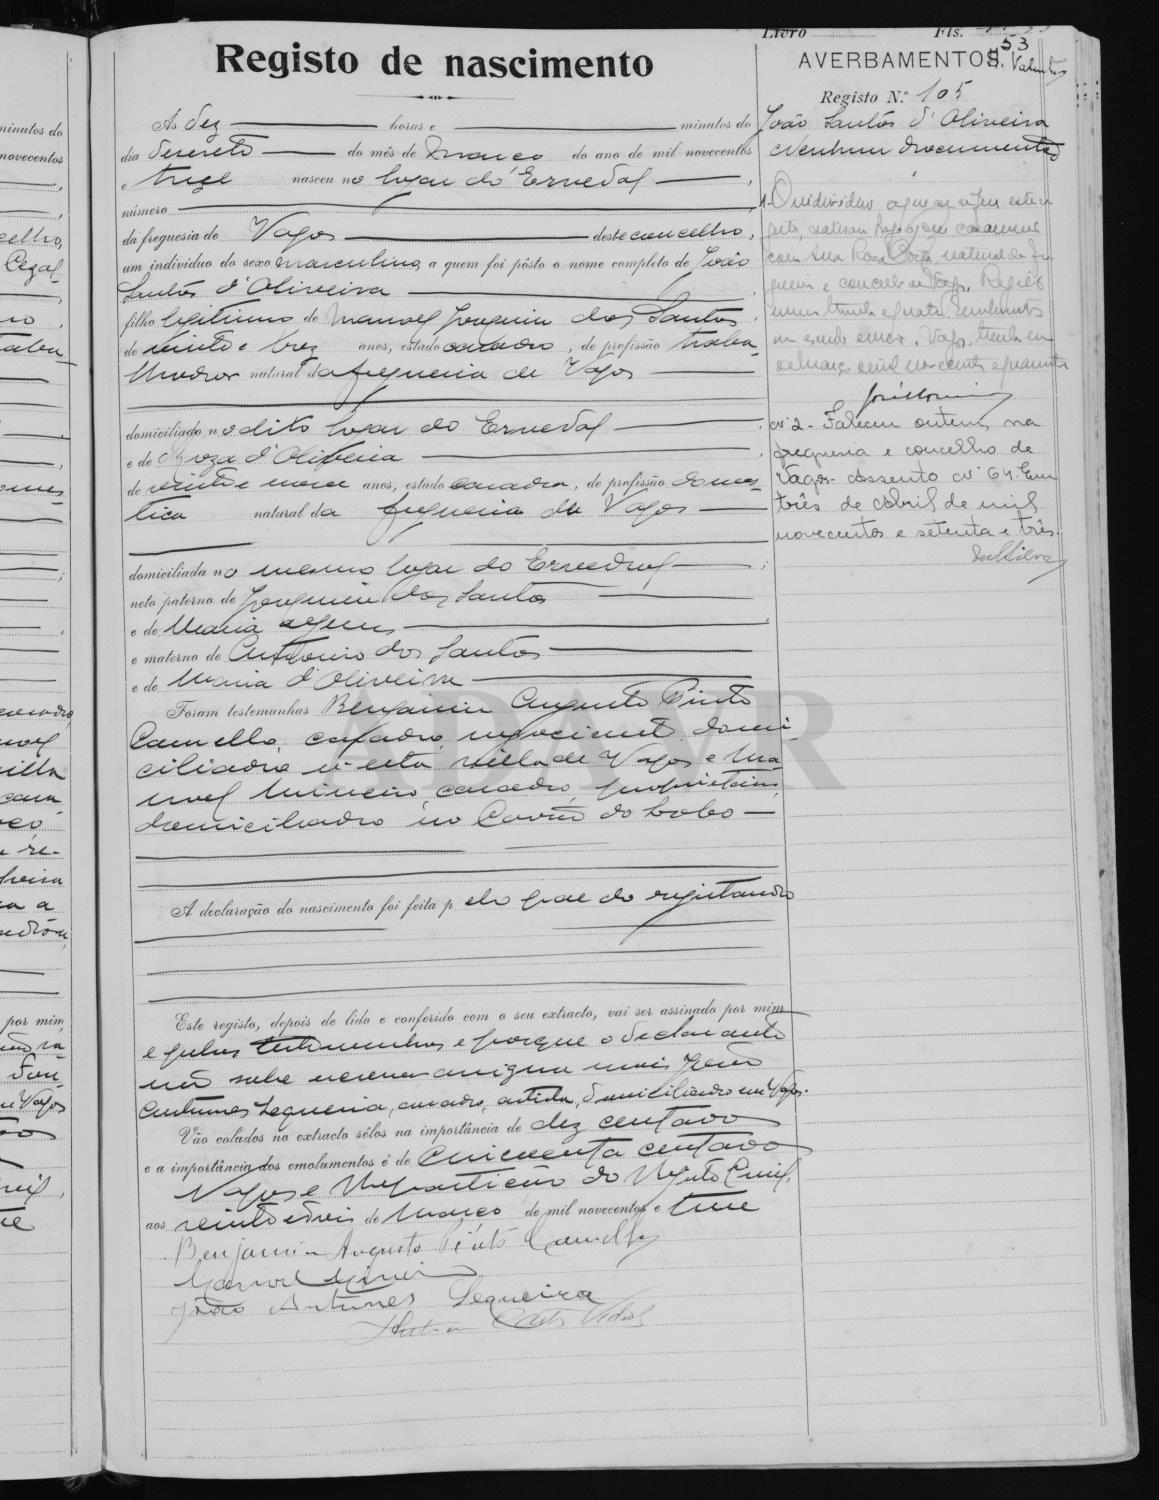 Livro Fls.
53
Registo de nascimento
AVERBAMENTOS
Registo N.º 105
João Santos d'Oliveira
Nenhum documento
Às dez horas e minutos do
dia dezesete do mês de Março do ano de mil novecentos
e treze nasceu no logar do Ervedal
número
da freguesia de Vagos deste concelho,
um indivíduo do sexo masculino, a quem foi pôsto o nome completo de João
Santos d'Oliveira
filho legitimo de Manoel Joaquim dos Santos
de vinte e trez anos, estado casado, de profissão traba-
lhador natural da freguesia de Vagos
domiciliado no dito logar do Ervedal
e de Roza d'Oliveira
de vinte e nove anos, estado casada, de profissão domes-
tica natural da freguesia de Vagos
domiciliada no mesmo logar do Ervedal
neto paterno de Joaquim dos Santos
e de Maria
e materno de Antonio dos Santos
e de Maria d'Oliveira
Foram testemunhas Benjamin Augusto Pinto
Camello, casado, negociante domi-
ciliado n'esta villa de Vagos e Ma-
noel Mineiro, casado, proprietario,
domiciliado no Covão do Lobo
A declaração do nascimento foi feita pelo pae do registando
Este registo, depois de lido e conferido com o seu extracto, vai ser assinado por mim
e pelas testemunhas e porque o declarante
não sabe escrever assigna João
Antunes Sequeira, casado, artista, domiciliado em Vagos.
Vão colados no extracto sêlos na importância de dez centavos
e a importância dos emolumentos é de cincoenta centavos
Vagos e Repartição do Registo Civil,
aos vinte e dois de Março de mil novecentos e treze
Benjamin Augusto Pinto Camello
Manoel Mineiro
João Antunes Sequeira
1- O individuo a que se refere este
com
natural da fre-
guesia e concelho de Vagos. Registo
numero trinta e quatro
Vagos, trinta
de Março mil novecentos e quarenta
Nº 2 - Faleceu ontem, na
freguesia e concelho de
Vagos - Assento nº 64. Em
três de Abril de mil
novecentos e setenta e três.
ADAVR